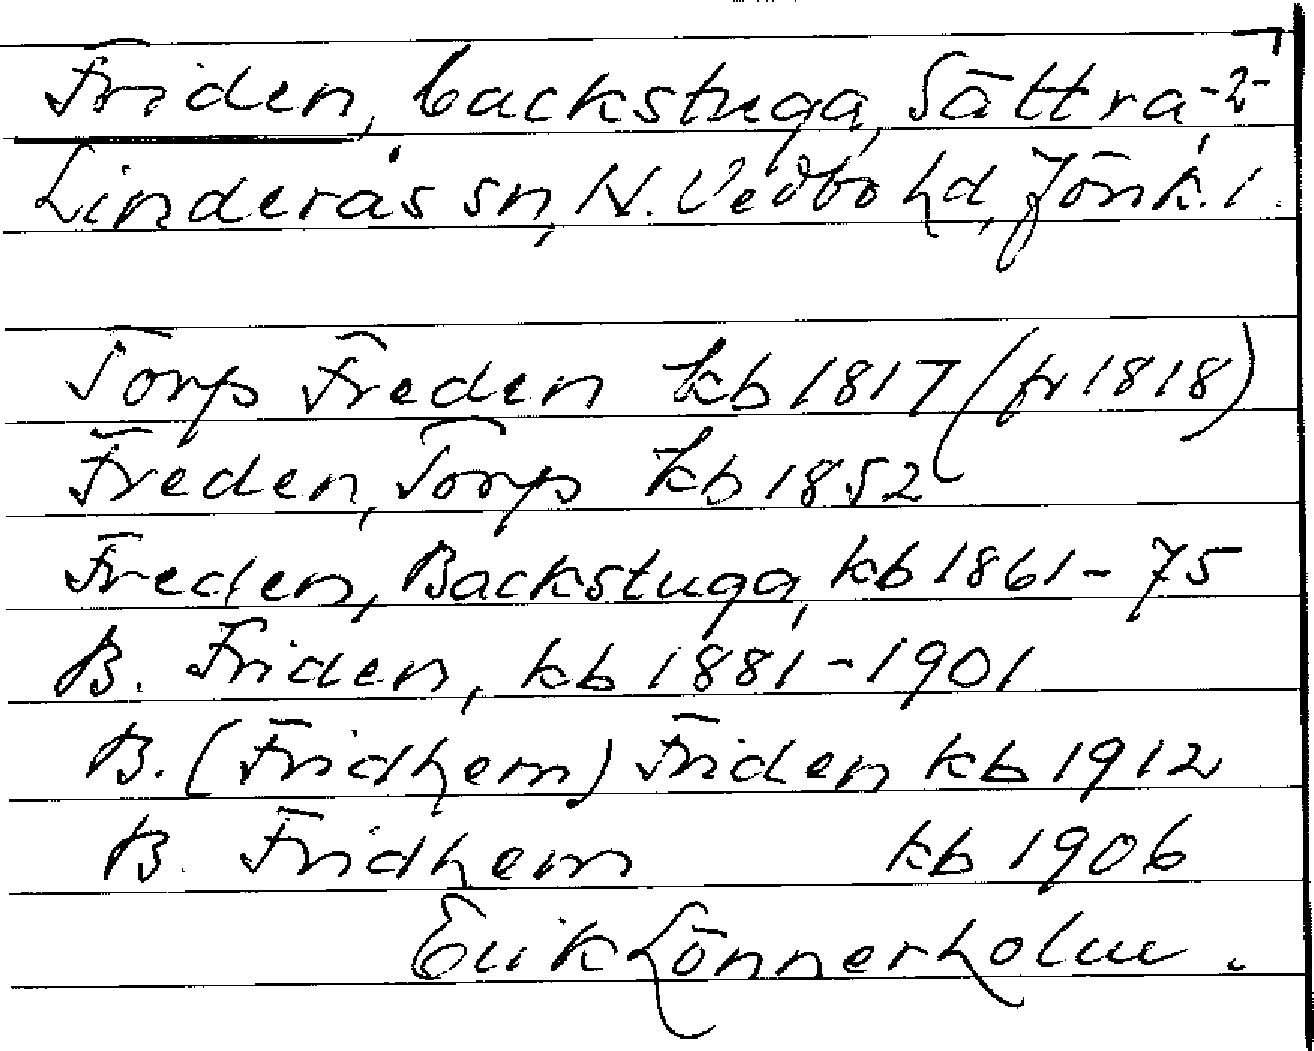 Friden, backstuga, Sättra, -2-
Linderås sn, N. Vedbo hd, Jönk. l.
Torp Freden kb 1817 (fr 1818)
Freden, Torp kb 1852
Freden, Backstuga, kb 1861-75
B. Friden, kb 1881-1901
B. (Fridhem) Friden kb 1912
B. Fridhem kb 1906
Erik Lönnerholm.